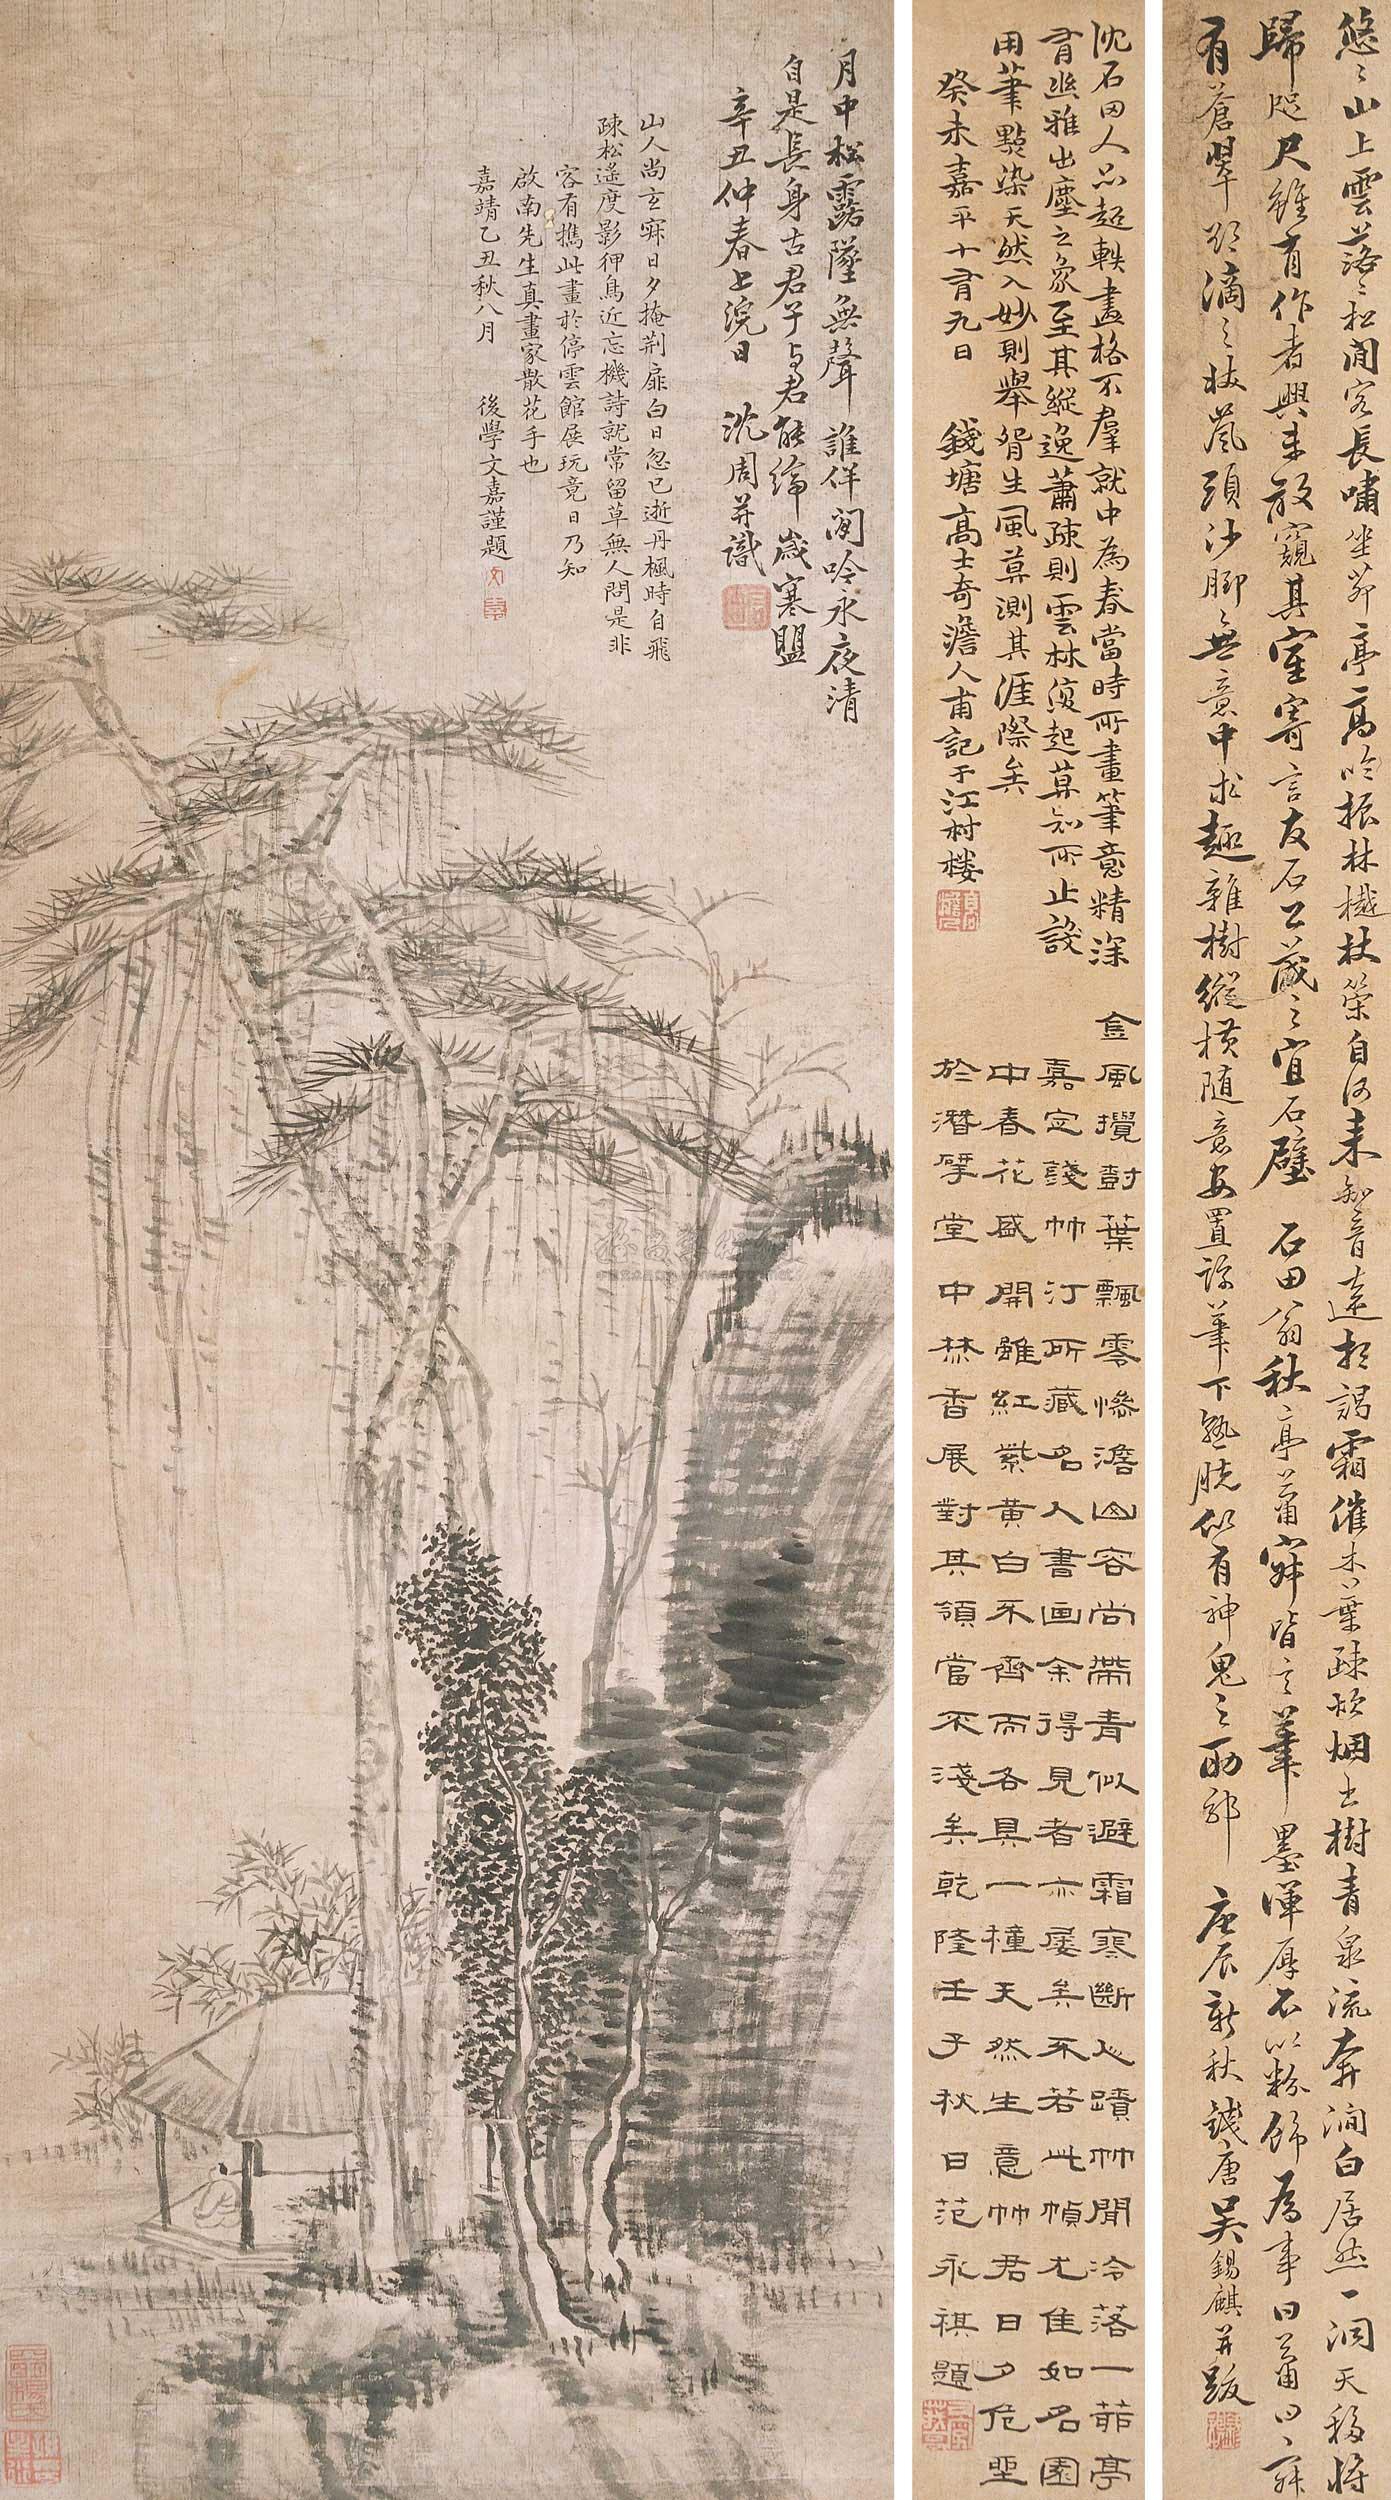 月中松露墜無聲誰伴閒吟永夜清
自是長身古君子与君能締歲寒盟
辛丑仲春上浣日 沈周并識
山人尚玄寂日夕掩荆扉白日忽已逝丹楓時自飛
疎松遙度影狎鳥近忘機詩就常留草無人問是非
客有携此畫於停雲館展玩竟日乃知
啟南先生真畫家散花手也
嘉靖乙丑秋八月 後學文嘉謹題
沈石田人品超軼畫格不羣就中為春當時所畫筆意精深
有幽雅出塵之象至其縱逸蕭疎則雲林復起莫知所止設
用筆點染天然入妙則舉腎生風莫測其涯際矣
癸未嘉平十有九日 錢塘高士奇澹人甫記于江村樓
金風攪樹葉飄零慘澹山容尚帶青似避霜寒斷人蹟竹間冷落一茆亭
嘉定錢竹汀所藏名人書画余得見者亦屡矣不若此幀尤佳如名園
中春花盛開雖紅紫黄白不齊而各具一種天然生意竹君日夕危坐
於潛擘堂中焚香展對其領當不淺矣乾隆壬子秋日范永祺題
悠〻山上雲落〻松間客長嘯坐茆亭高吟振林樾杖策自何来知音遠相謁霜催木葉疎炊烟出樹青泉流奔澗白居然一洞天移將
歸咫尺雖有作者興未敢窺其窟寄言友石公藏之宜石壁 石田翁秋亭蕭寂皆之筆墨渾厚不以粉飾為事日蕭日〻
有蒼翠欲滴之妝嵐頭沙脚無意中求趣雜樹縱横随意安置詠筆下熟脱似有神鬼之助耶 庚辰新秋錢唐吴錫麒并跋